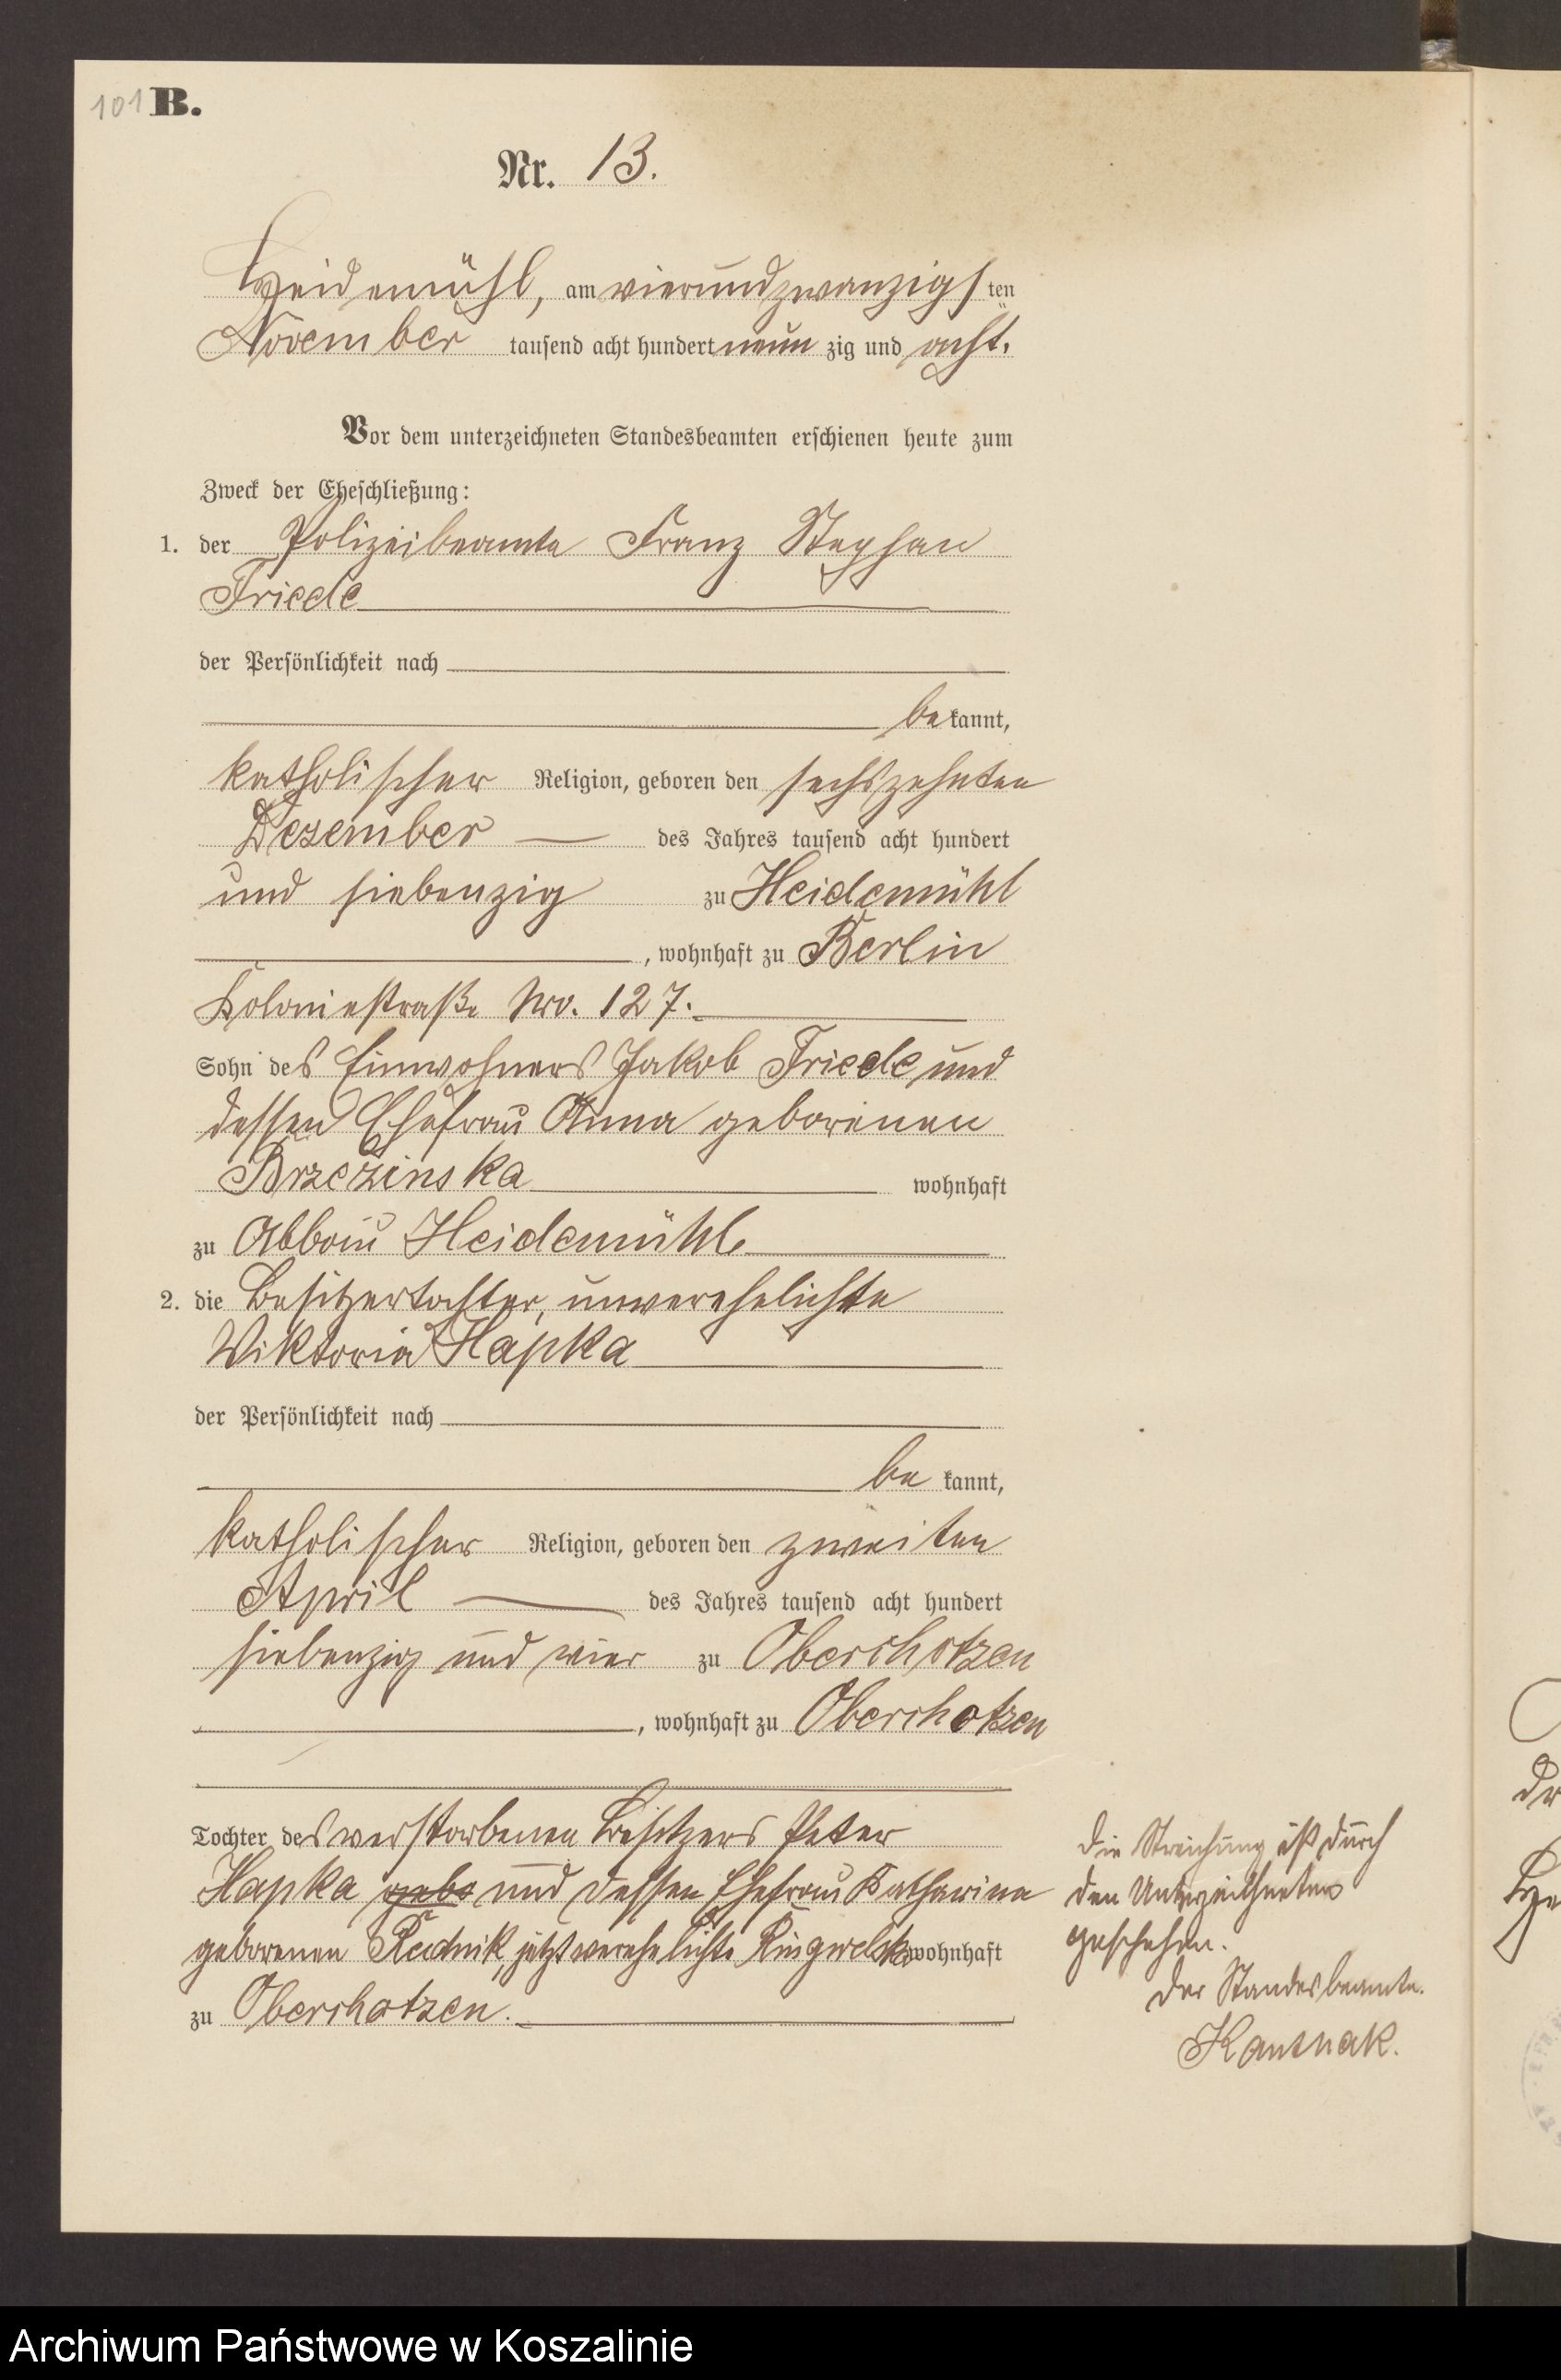 101 B.
Nr. 13.
Heidemühl, am vierundzwanzigsten
November tausend acht hundert neun zig und acht.
Vor dem unterzeichneten Standesbeamten erschienen heute zum
Zweck der Eheschließung:
1. der Polizeibeamte Franz Stephan
Friede
der Persönlichkeit nach
bekannt,
katholischer Religion, geboren den sechszehnten
Dezember des Jahres tausend acht hundert
und siebenzig zu Heidemühl
, wohnhaft zu Berlin
Koloniestraße Nro. 127.
Sohn des Einwohners Jakob Friede und
dessen Ehefrau Anna geborenen
Brzezinska wohnhaft
zu Abbau Heidemühl
2. die Besitzertochter, unverehelichte
Wiktoria Hapka
der Persönlichkeit nach
be kannt,
katholischer Religion, geboren den zweiten
April des Jahres tausend acht hundert
siebenzig und vier zu Oberchotzen
, wohnhaft zu Oberchotzen
Tochter des verstorbenen Besitzers Peter
Hapka gebo und dessen Ehefrau Katharina
geborenen Rudnik, jetzt verehelichte wohnhaft
zu Oberchotzen.
Die Streichung ist durch
den Unterzeichneten
geschehen.
Der Standesbeamte.
Kantnak.
Archiwum Państwowe w Koszalinie